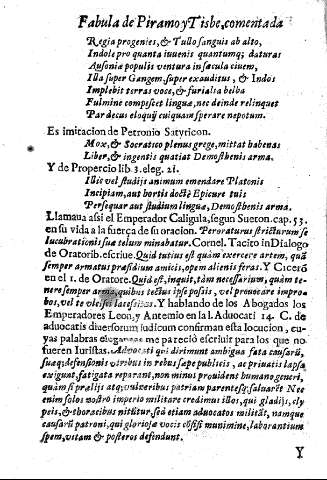 Fabula de Piramo y Tisbe, comentada
Regia progenies, & Tullo sanguis ab alto,
Indole pro quanta iuuenis quantumq; daturus
Ausoniæ populis ventura in sæcula ciuem,
Illa super Gangem. super exauditus, & Indos
Implebit terras voce, & furialia belba
Fulmine compescet linguæ, nec deinde relinquet
Par decus eloquij cuiquam sperare nepotum.
Es imitacion de Petronio Satyricon.
Mox, & Socratico plenus grege, mittat habenas
Liber, & ingentis quatiat Demosthenis arma.
Y de Propercio lib. 3. eleg. 21.
Illic vel studijs animum emendare Platonis
Incipiam, aut hortis docte Epicure tuis
Persequar aut studium linguæ, Demosthenis arma.
Llamaua assi el Emperador Caligula, segun Sueton. cap. 53.
en su vida a la fuerça de su oracion. Peroraturus stricturum se
lucubrationis suæ telum minabatur. Cornel. Tacito in Dialogo
de Oratorib. escriue. Quid tutius est quàm exercere artem, quâ
semper armatus præsidium amicis, opem alienis feras. Y Ciceró
en el 1. de Orator. Quid est, inquit, tàm necessarium, quàm te-
nere semper arma, quibus tectus ipse possis, vel prouocare impro-
bos, vel te vlcisci lacessitus. Y hablando de los Abogados los
Emperadores Leon, y Antemio en la l. Aduocati 14. C. de
aduocatis diuersorum iudicum confirman esta locucion, cu-
yas palabras elegantes me pareciò escriuir para los que no
fueren Iuristas. Aduocati qui dirimunt ambigua fata causarũ,
suæq; defensionis viribus in rebus sæpe publicis, ac priuatis lapsa
exigunt, fatigata reparant, non minus prouident humano generi,
quàm si prælijs atq; vulneribus patriam parentesq; saluarẽt. Nec
enim solos nostro imperio militare credimus illos, qui gladijs, cly
peis, & thoracibus nitũtur, sed etiam aduocatos militãt, namque
causarũ patroni, qui gloriosæ vocis cõfisi munimine, laborantium
spem, vitam & posteros defendunt.
Y